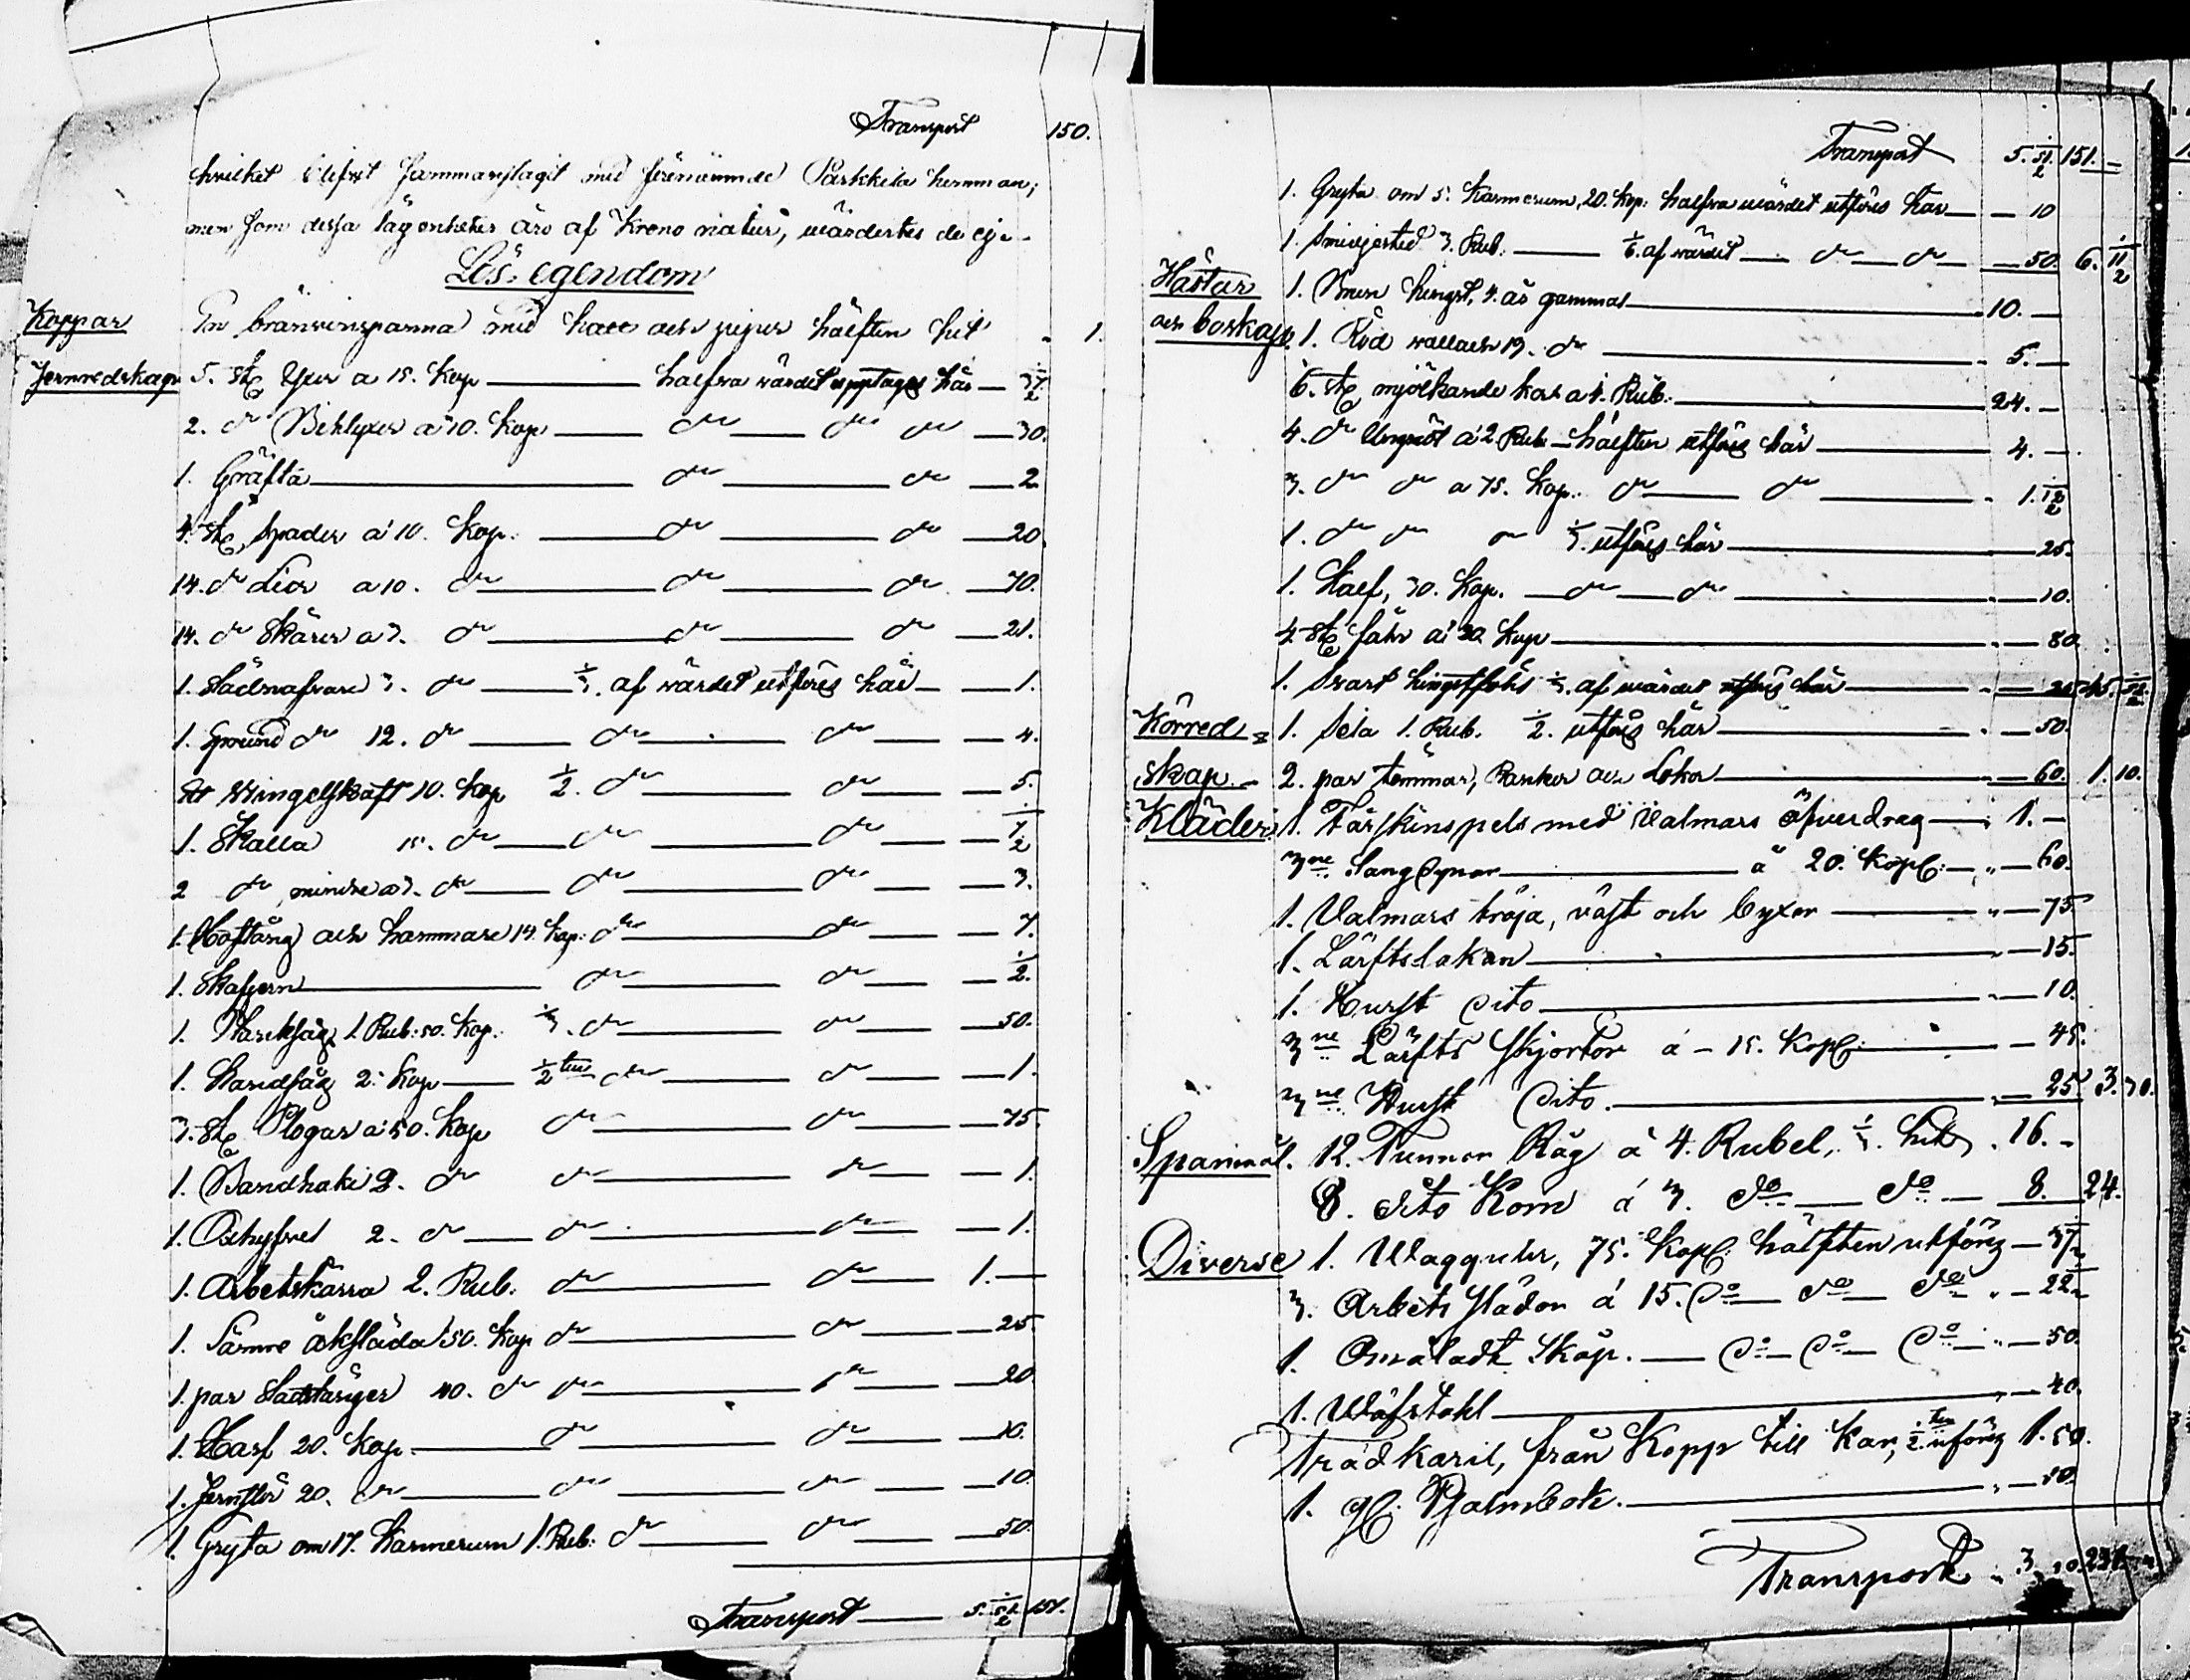 Transport 150.
hvilket blifvit sammanslagit med förenämnde Parkkila hemman;
men som dessa lägenheter äro af Krono natur, värdertes de ej.
Lös-egendom
Koppar En bränvinspanna med hatt och pipor hälften hit 1.
Jernredskap 5. st Yxor a 15. Kop halfva värdet upptages här 37 1/2
2. do Bihlyxor a 30. Kop do do do 30.
1. Gräfta do do 2
4. st Spader a 10. Kop. do do 20.
14. do Liar a 10. do do do 70.
14. do Skäror a 3. do do do 21.
1. Städnafvare 3. do 1/3. af värdet utföres här 1.
1. Grund do 12. do do do 4.
Ett Svingelskaft 10. Kop 1/2. do do 5.
1. Skalla 15. do do do 7 1/2
2 do, mindre a 3. do do do 3.
1. Hoftång och hammare 14. Kop: do do 7.
1. Skafjern do do 1/2.
1. Stocksåg 1. Rub: 50. Kop. 1/3. do do 50.
1. Handsåg 2. Kop 1/2 ten do do 1.
3. st Plogar a 50. Kop do do 75.
1. Bandhake 2. do do do 1.
1. Oxhyfvel 2. do do do 1.
1. Arbetskärra 2. Rub. do do 1.
1. Sämre åksläda 50. Kop do do 25.
1. par Stadstänger 40. do do do 20
1. Harf 20. Kop. do do 10.
1. Jernstör 20. do do do 10.
1. Gryta om 17. Kannerum 1. Rub: do do 50.
Transport 5. 51 1/2 151.
Transport 5. 51 1/2 151.
1. Gryta om 5. Kannerum, 20. Kop: halfva värdet utföres här 10
1. Smidjestäd 3. Rub. 1/6. af värdet do do 50. 6. 11 1/2
Hästar 1. Brun hingst, 4. år gammal 10.
och boskap. 1. Röd vallach 13. do 5.
6. st mjölkande kor a 4. Rub. 24.
4. do Ungnöt a 2. Rub hälften utföres här 4.
3. do do a 75. Kop. do do 1. 12 1/2
1. do do do 1/3. utföres här 25.
1. Kalf, 30. Kop. do do 10.
4. st får a 20. Kop 80.
1. Svart hingstföhl 1/3. af värdet utföres här
Körred= 1. Sela 1. Rub. 1/2. utföres här 50.
skap. 2. par tömmar, Rankor och Lokor 60. 1. 10.
Kläder. 1. Fårskinspels med Valmars öfverdrag 1.
3ne. Sängdynor a 20. Kop. 60.
1. Valmars tröja, väst och byxor 75.
1. Lärftslakan 15.
1. Hurst dito 10.
3ne Lärfts skjortor a 15. Kop. 45.
3ne. Hurst Dito. 25. 3. 30.
Spanmål. 12. Tunnor Råg á 4. Rubel, 1/3. hit 16.
8. dito Korn á 3. do do 8. 24.
Diverse 1. Wägguhr, 75. Kop: hälften utförs 37 1/2
3. Arbets slädor á 15. do do do 22 1/2
1. Omåladt Skåp. do do do 50.
1. Wäfstohl 40.
Trädkäril, från Kopp till Kar, 1/2 ten utförs 1. 50.
1. gl. Psalmbok. 10.
Transport 3.